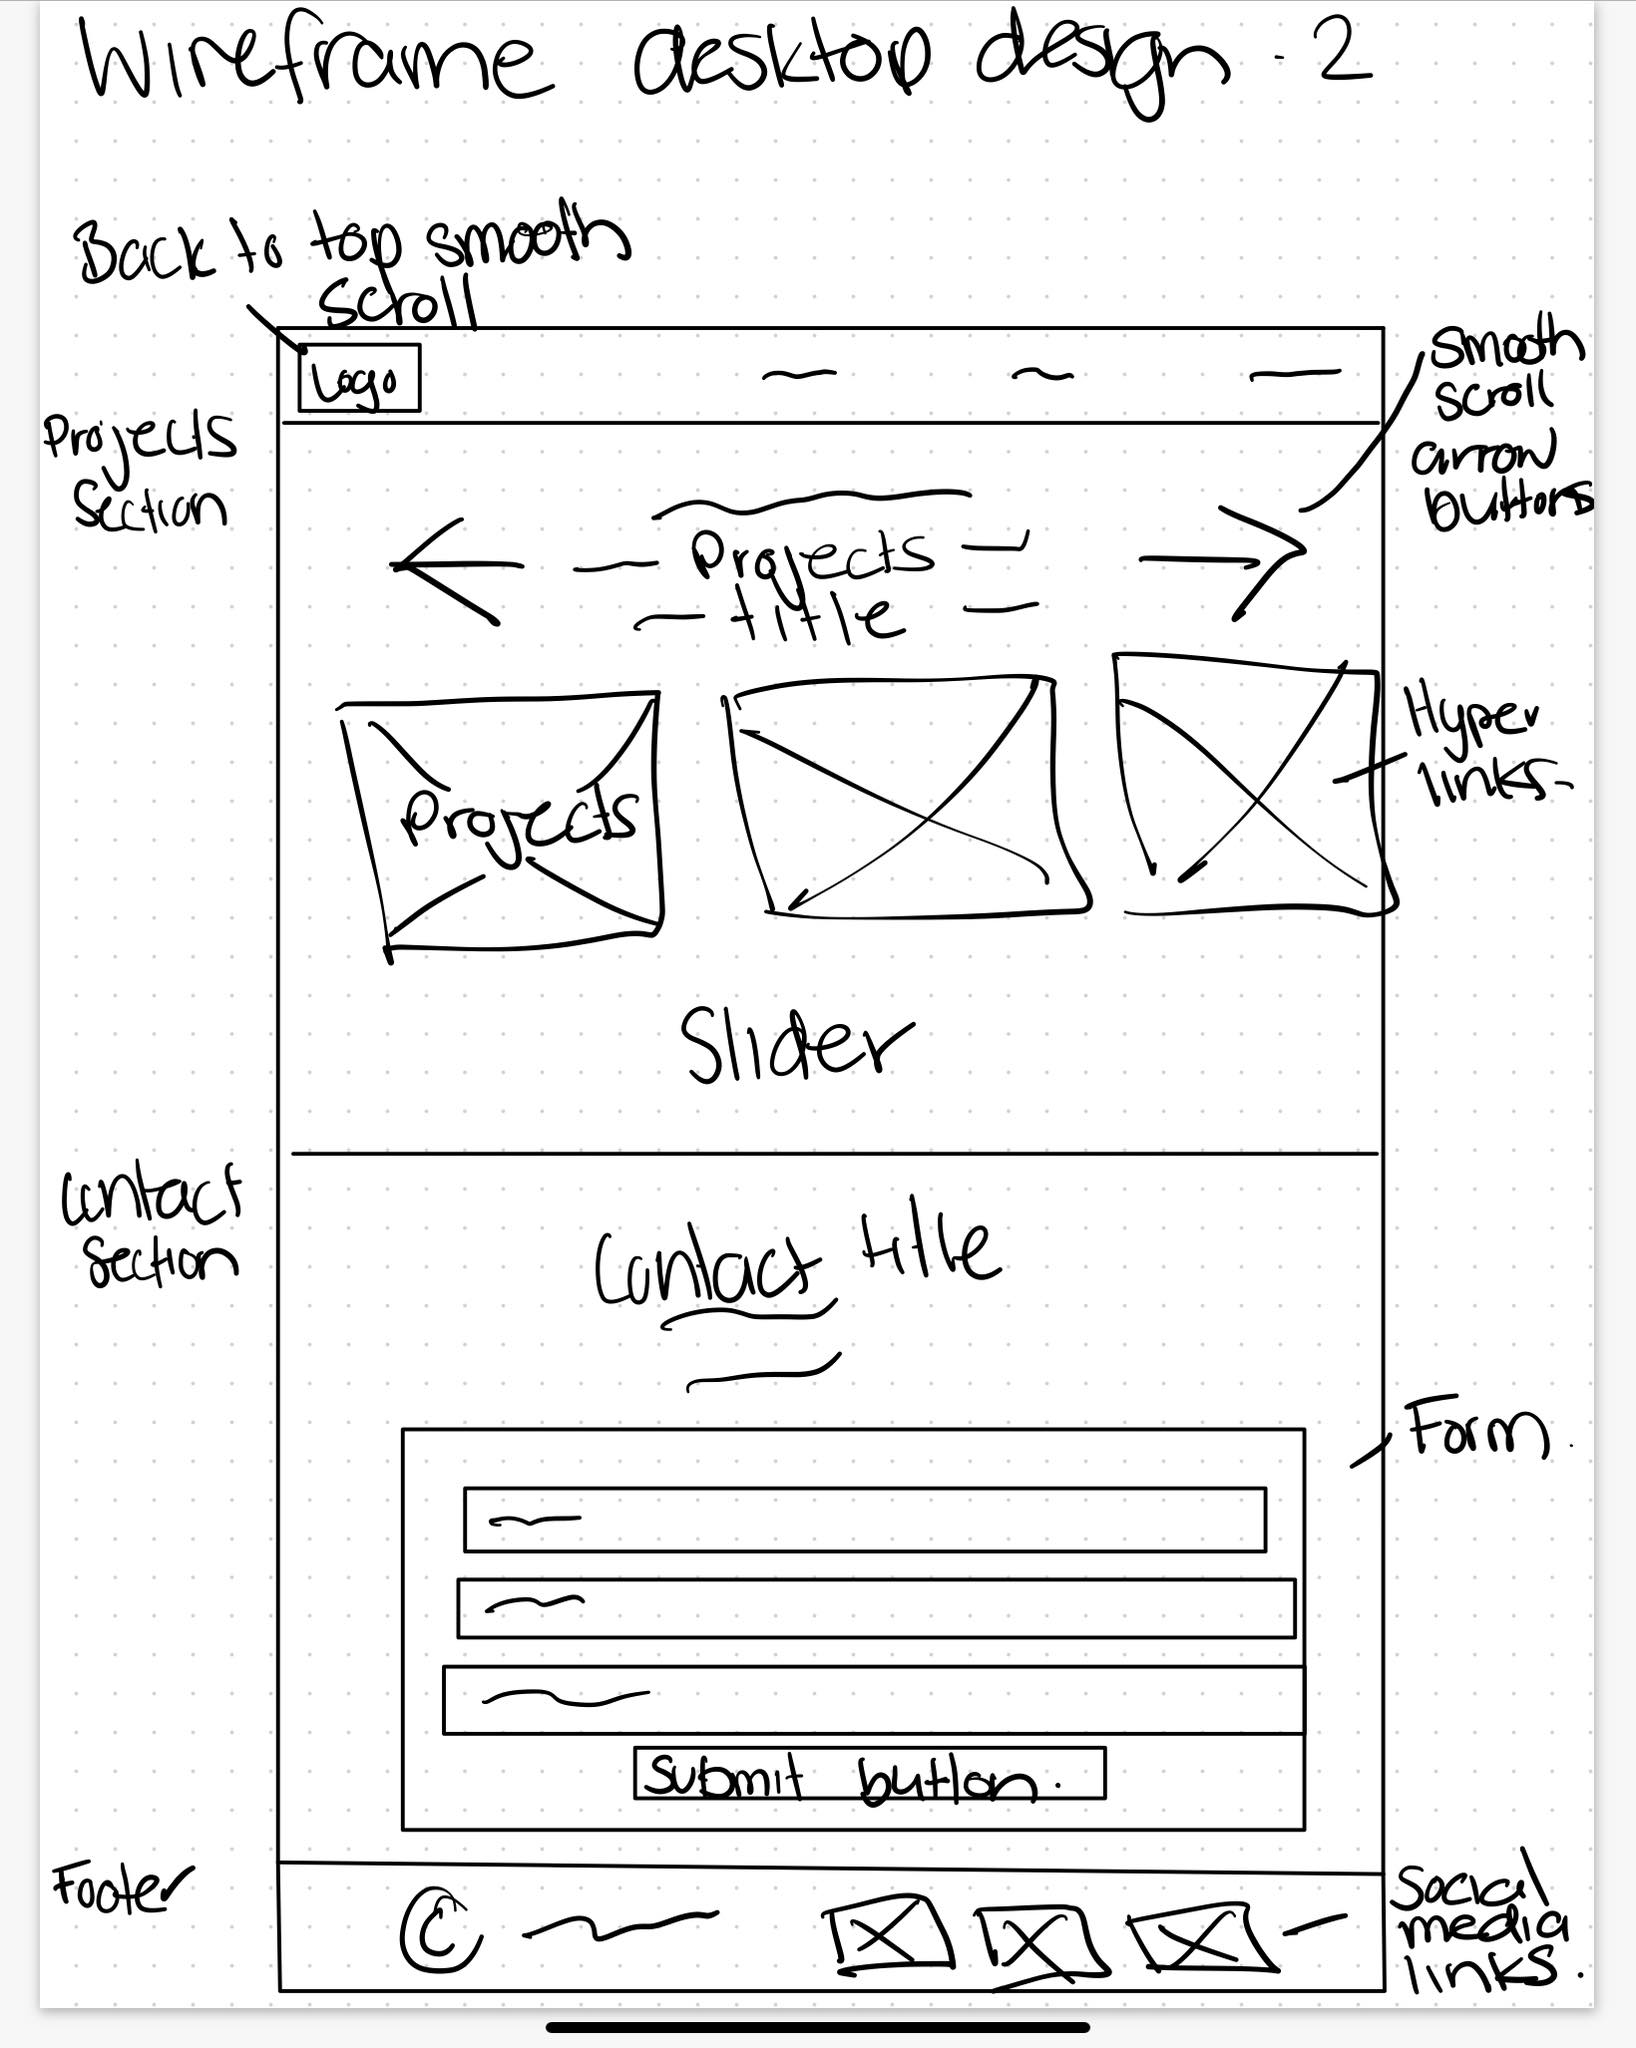 Wireframe desktop design - 2
Back to top smooth
scroll
Logo
smooth
scroll
arrow
buttons
Projects
Section
Projects
title
Projects
Hyper
links
Slider
Contact
Section
Contact title
Form.
Submit button.
Footer
©
Social
media
links.